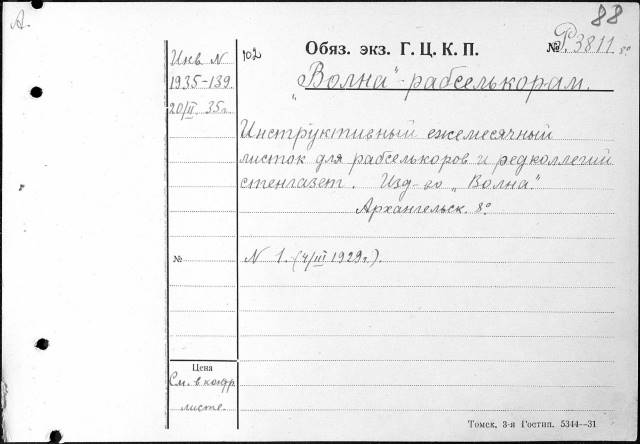 А.
88
Инв. N
1935-139.
20/II. 35г.
102
Обяз. экз. Г. Ц. К. П.
№ Р. 3811. 8°
„Волна“-рабселькорам.
Инструктивный ежемесячный
листок для рабселькоров и редколлегий
стенгазет. Изд-во „Волна“.
Архангельск. 8°
№
N 1. (4/III 1929г.).
Цена
См. в контр.
листе.
Томск. 3-я Гостип. 5344—31